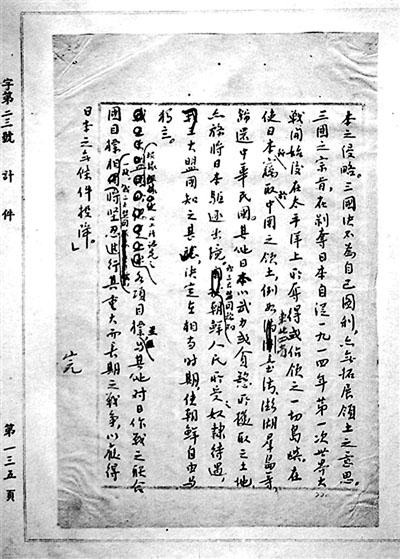 本之侵略。三國決不為自己圖利，亦無拓展領土之意思。
三國之宗旨，在剝奪日本自從一九一四年第一次世界大
戰開始後在太平洋上所奪得或佔領之一切島嶼，在
使日本所竊取中國之領土，例如東北四省臺湾、澎湖羣島等，
歸還中華民國。其他日本以武力或貪慾所攫取之土地
亦務將日本驅逐出境。我三大盟國稔知朝鮮人民所受之奴隸待遇，
大盟國知之甚 決定在相當時期，使朝鮮自由與
獨立。
根據以上所認定之
各項目標，並與其他對日作戰之聯合
國目標相一致，我三大盟國將堅忍進行其重大而長期之戰爭，以獲得
日本之無條件投降。」
完
字第二三號 計 件
第一三五頁